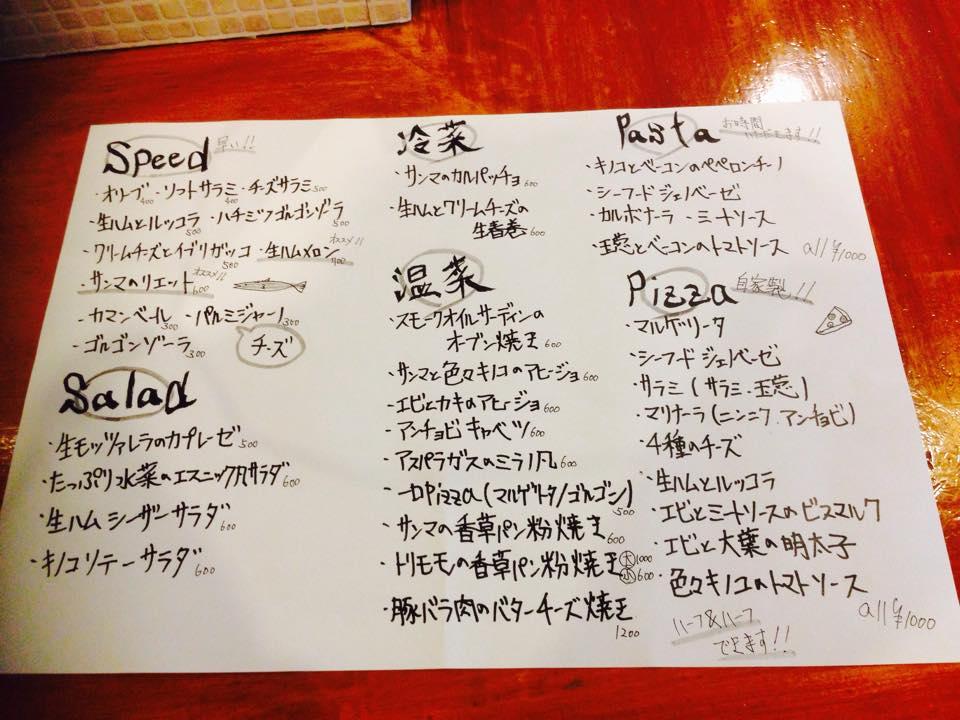 Speed 早い!!
・オリーブ400 ・ソフトサラミ400 ・チーズサラミ500
・生ハムとルッコラ500 ・ハチミツゴルゴンゾラ500
・クリームチーズとイブリガッコ500 ・生ハムメロン オススメ!! 700
・サンマのリエット オススメ!! 600
・カマンベール300 ・パルミジャーノ300
・ゴルゴンゾーラ300 チーズ
Salad
・生モッツァレラのカプレーゼ500
・たっぷり水菜のエスニック風サラダ600
・生ハムシーザーサラダ600
・キノコソテーサラダ600
冷菜
・サンマのカルパッチョ600
・生ハムとクリームチーズの
生春巻600
温菜
・スモークオイルサーディンの
オーブン焼き600
・サンマと色々キノコのアヒージョ600
・エビとカキのアヒージョ600
・アンチョビキャベツ600
・アスパラガスのミラノ風600
・一口Pizza(マルゲリータ/ゴルゴン)500
・サンマの香草パン粉焼き600
・トリモモの香草パン粉焼き 大1000
小600
・豚バラ肉のバターチーズ焼き
1200
Pasta お時間 ます!!
・キノコとベーコンのペペロンチーノ
・シーフードジェノベーゼ
・カルボナーラ ・ミートソース
・玉葱とベーコンのトマトソース all ¥1000
Pizza 自家製!!
・マルゲリータ
・シーフードジェノベーゼ
・サラミ(サラミ・玉葱)
・マリナーラ(ニンニク.アンチョビ)
・4種のチーズ
・生ハムとルッコラ
・エビとミートソースのビスマルク
・エビと大葉の明太子
・色々キノコのトマトソース
all ¥1000
ハーフ&ハーフ
できます!!